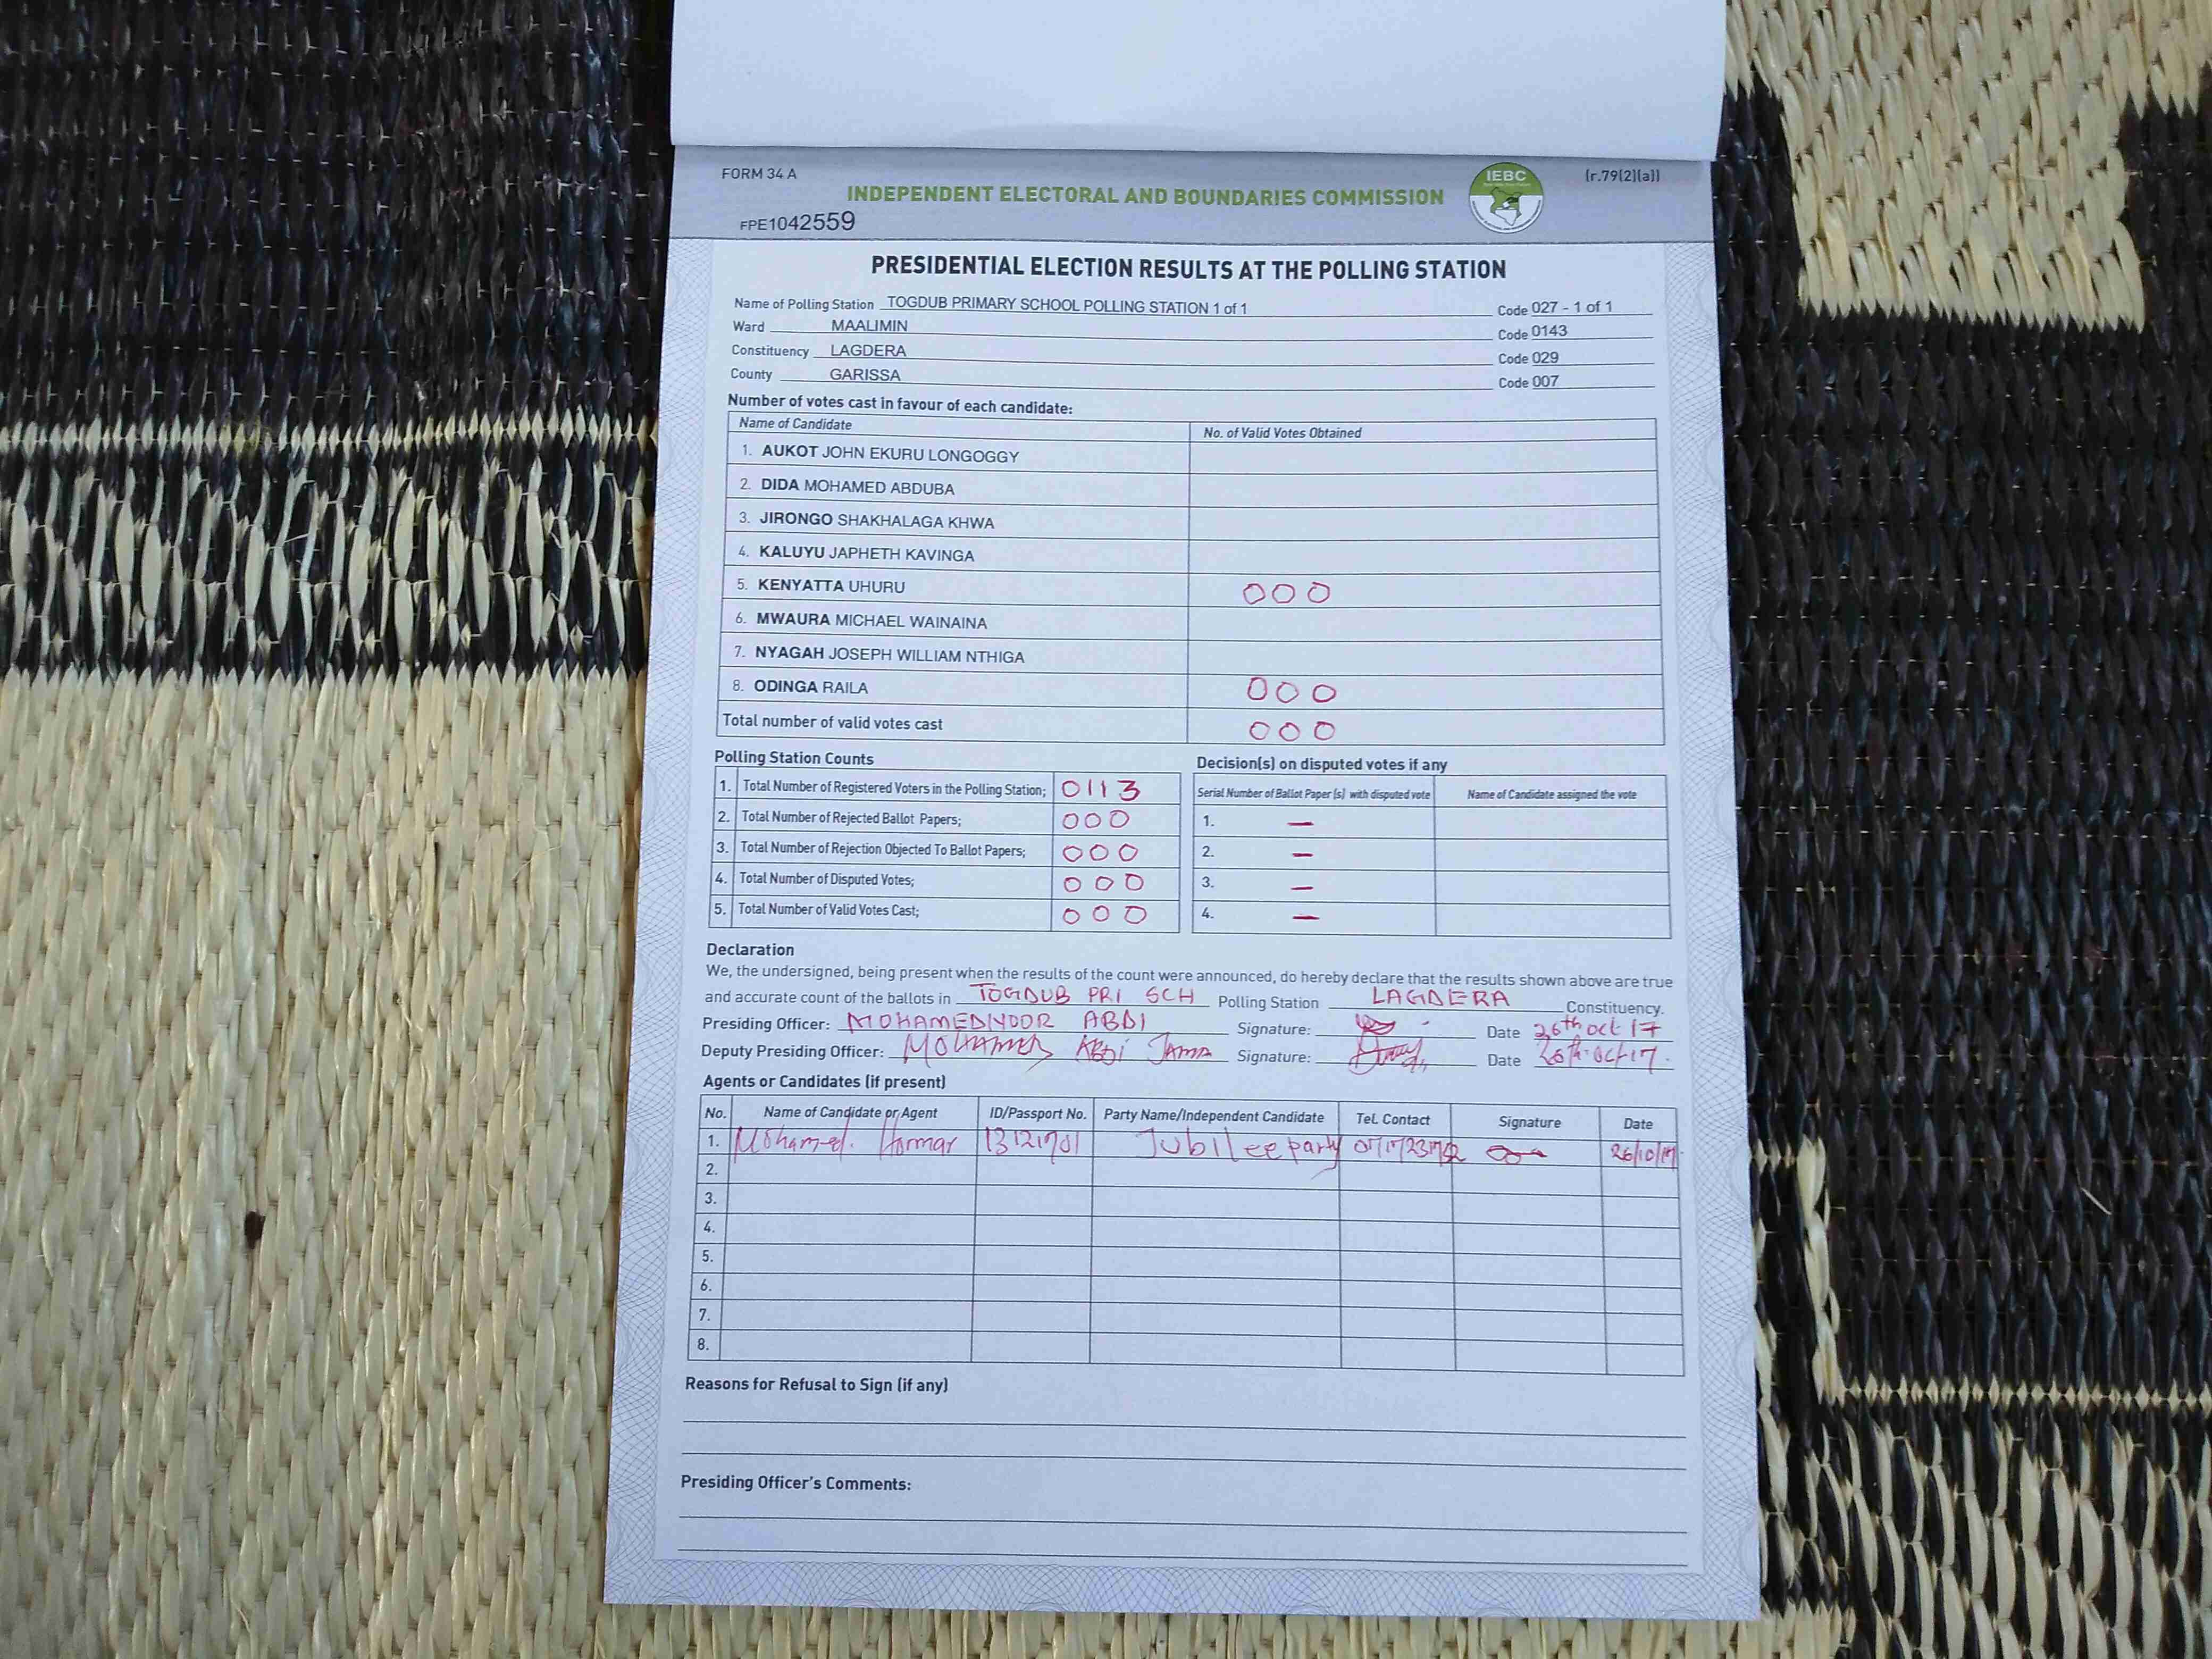 FORM 34 A
INDEPENDENT ELECTORAL AND BOUNDARIES COMMISSION
IEBC
(r.79(2)(a))
FPE1042559
PRESIDENTIAL ELECTION RESULTS AT THE POLLING STATION
Name of Polling Station TOGDUB PRIMARY SCHOOL POLLING STATION 1 of 1 Code 027 - 1 of 1
Ward MAALIMIN Code 0143
Constituency LAGDERA Code 029
County GARISSA Code 007
Number of votes cast in favour of each candidate:
Name of Candidate No. of Valid Votes Obtained
1. AUKOT JOHN EKURU LONGOGGY
2. DIDA MOHAMED ABDUBA
3. JIRONGO SHAKHALAGA KHWA
4. KALUYU JAPHETH KAVINGA
5. KENYATTA UHURU 000
6. MWAURA MICHAEL WAINAINA
7. NYAGAH JOSEPH WILLIAM NTHIGA
8. ODINGA RAILA 000
Total number of valid votes cast 000
Polling Station Counts
1. Total Number of Registered Voters in the Polling Station; 0113
2. Total Number of Rejected Ballot Papers; 000
3. Total Number of Rejection Objected To Ballot Papers; 000
4. Total Number of Disputed Votes; 000
5. Total Number of Valid Votes Cast; 000
Decision(s) on disputed votes if any
Serial Number of Ballot Paper (s) with disputed vote Name of Candidate assigned the vote
1. —
2. —
3. —
4. —
Declaration
We, the undersigned, being present when the results of the count were announced, do hereby declare that the results shown above are true
and accurate count of the ballots in TOGDUB PRI SCH Polling Station LAGDERA Constituency.
Presiding Officer: MOHAMEDNOOR ABDI Signature: Date 26th oct 17
Deputy Presiding Officer: MOHAMED ABDI JAMA Signature: Date 26th oct 17.
Agents or Candidates (if present)
No. Name of Candidate or Agent ID/Passport No. Party Name/Independent Candidate Tel. Contact Signature Date
1. Mohamed. Jubilee party 26/10/17.
2.
3.
4.
5.
6.
7.
8.
Reasons for Refusal to Sign (if any)
Presiding Officer's Comments: